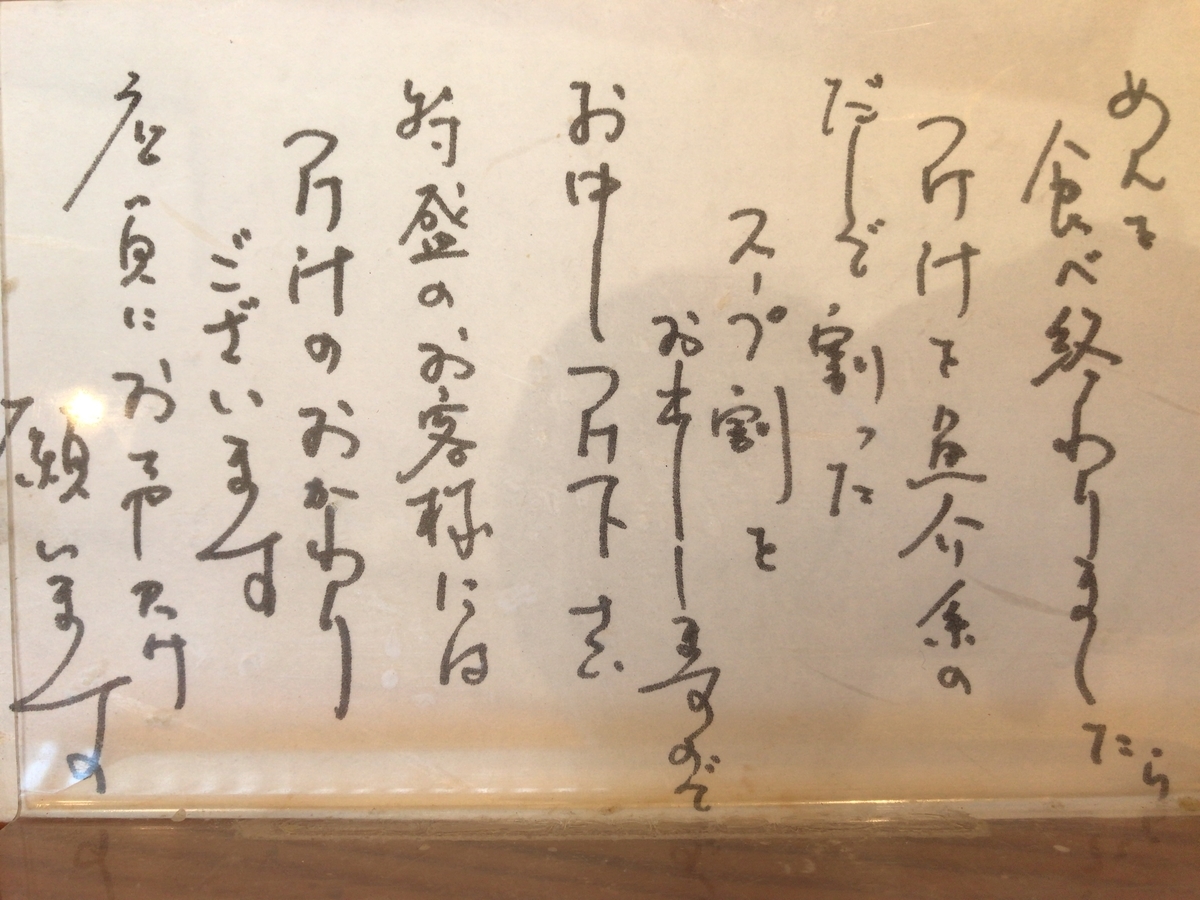 めんを
食べ終わりましたら
つけ汁を魚介系の
だしで割った
スープ割を
お出ししますので
お申しつけ下さい
特盛のお客様には
つけ汁のおかわり
ございます
店員にお申しつけ
願います